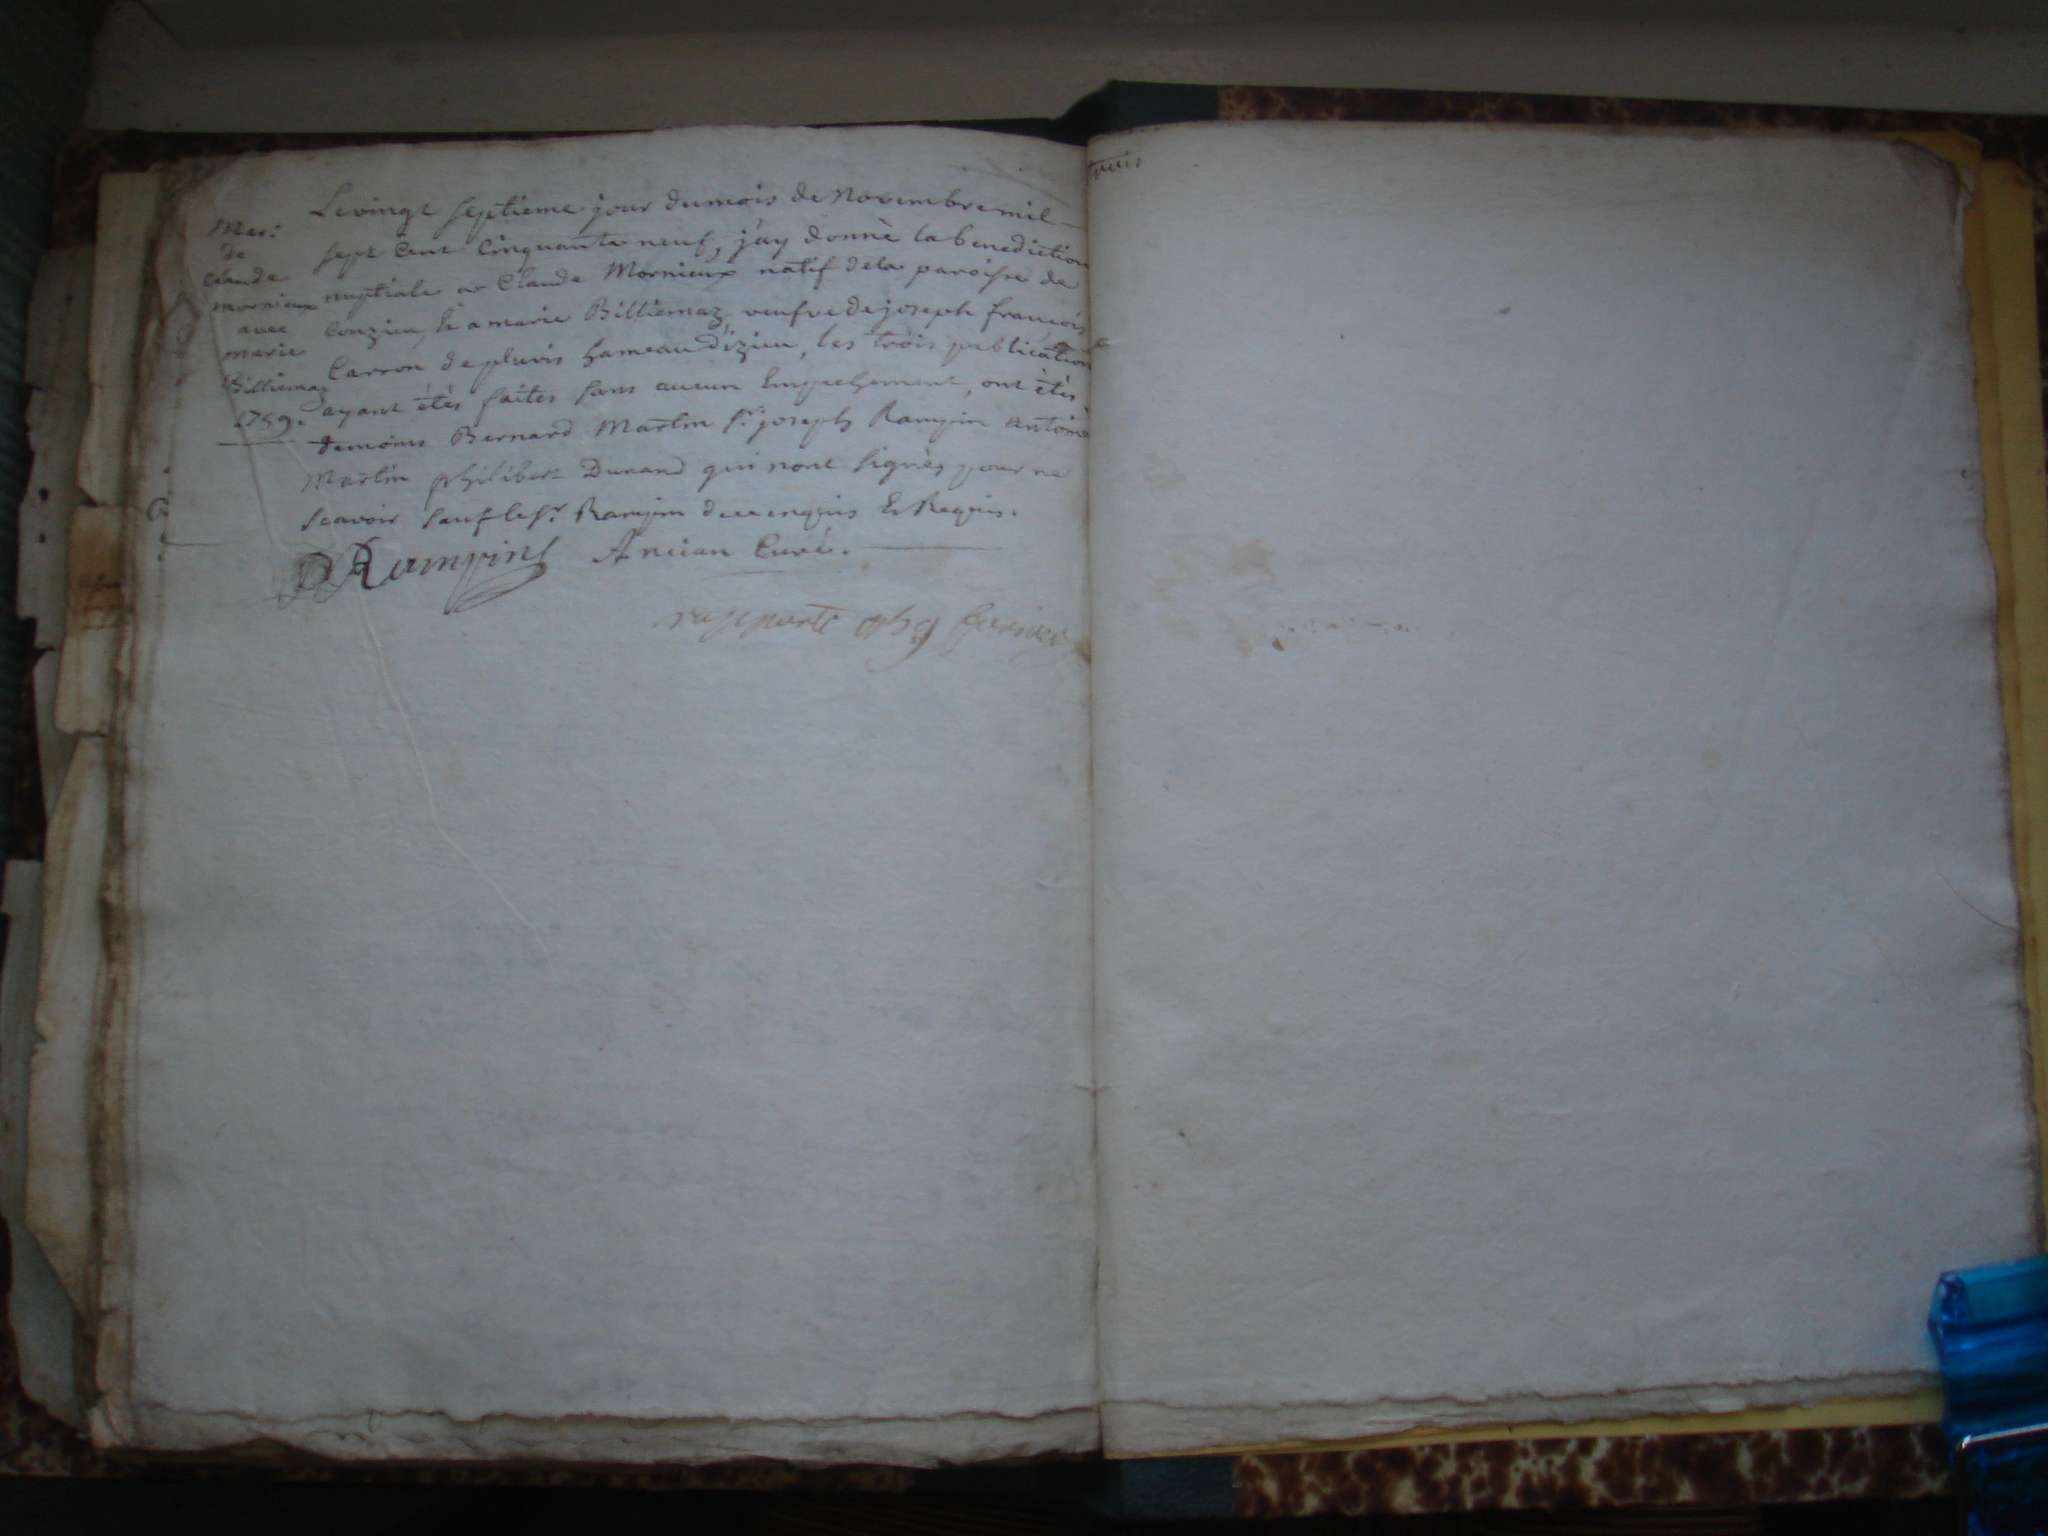 Mar:
de
Claude
mornieux
avec
marie
Billiemaz
1759.
Le vingt septieme jour du mois de Novembre mil
sept cent cinquante neuf, j'ay donnè la benediction
nuptiale a Claude Mornieux natif de la paroisse de
Conzieu, & a marie Billiemaz veufve de joseph francois
Carron de pluvis hameau d'izieu, les trois publication
ayant étés faites sans aucun Empechement, ont étés
temoins Bernard Martin Sr. joseph Rampin antoine
Martin philibert Dunand qui nont signés pour ne
scavoir sauf le Sr. Rampin de ce enquis Et Requis.
Rampin Ancian Curé.